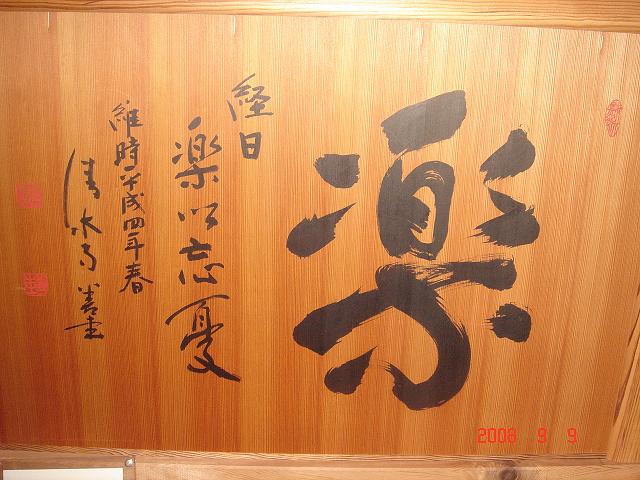 楽
経日
楽以忘憂
維時平成四年春
清水寺 善圭
2008 9 9